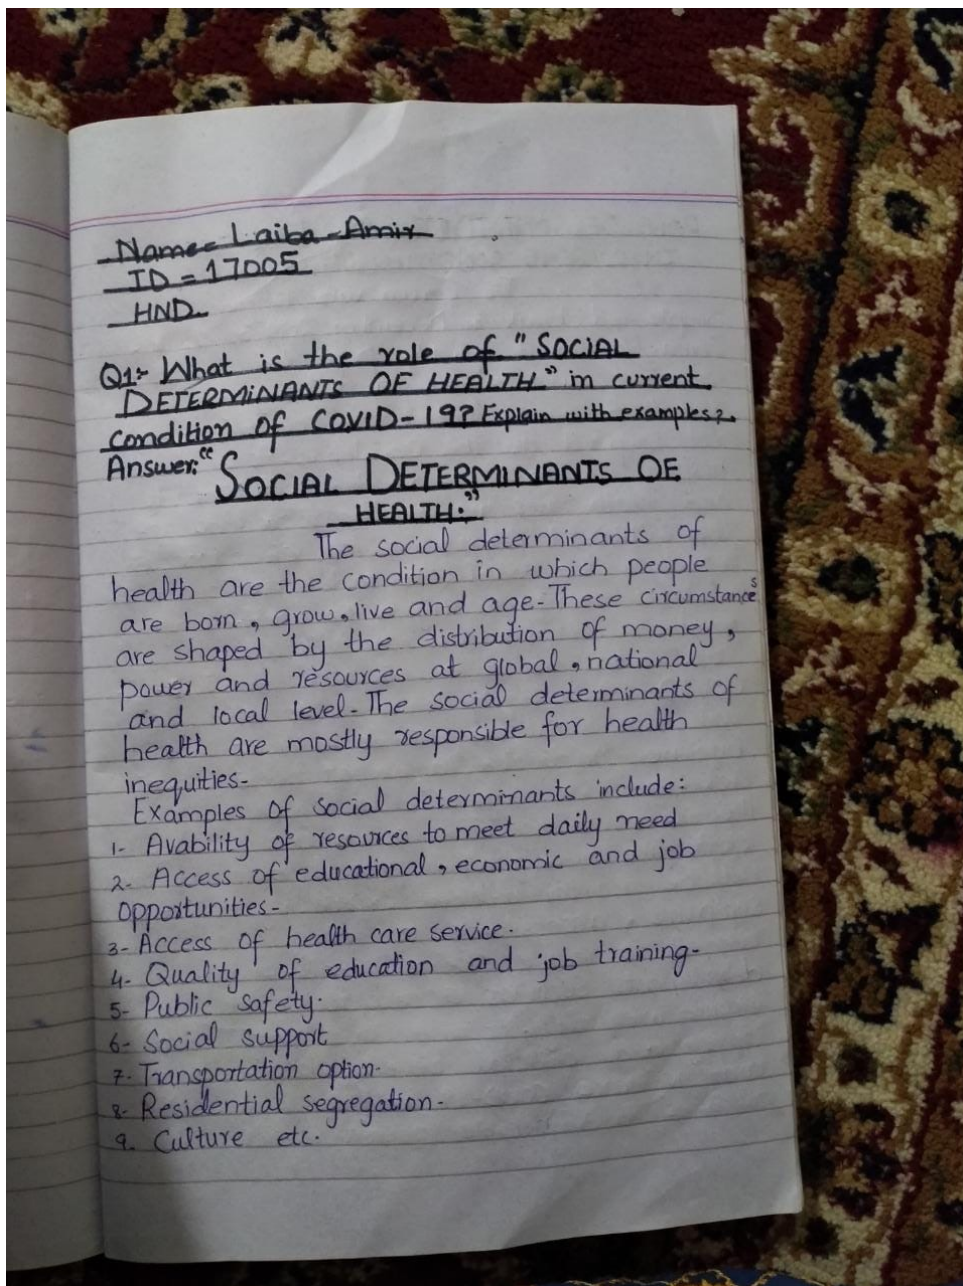 Name= Laiba Amir
ID = 17005
HND
Q1:- What is the role of "SOCIAL
DETERMINANTS OF HEALTH" in current
condition of COVID-19? Explain with examples?
Answer: "SOCIAL DETERMINANTS OF
HEALTH:"
The social determinants of
health are the condition in which people
are born, grow, live and age. These circumstances
are shaped by the distribution of money,
power and resources at global, national
and local level. The social determinants of
health are mostly responsible for health
inequities-
Examples of social determinants include:
1- Avability of resources to meet daily need
2- Access of educational, economic and job
opportunities-
3- Access of health care service.
4- Quality of education and job training-
5- Public safety.
6- Social support
7- Transportation option-
8- Residential segregation-
9. Culture etc.